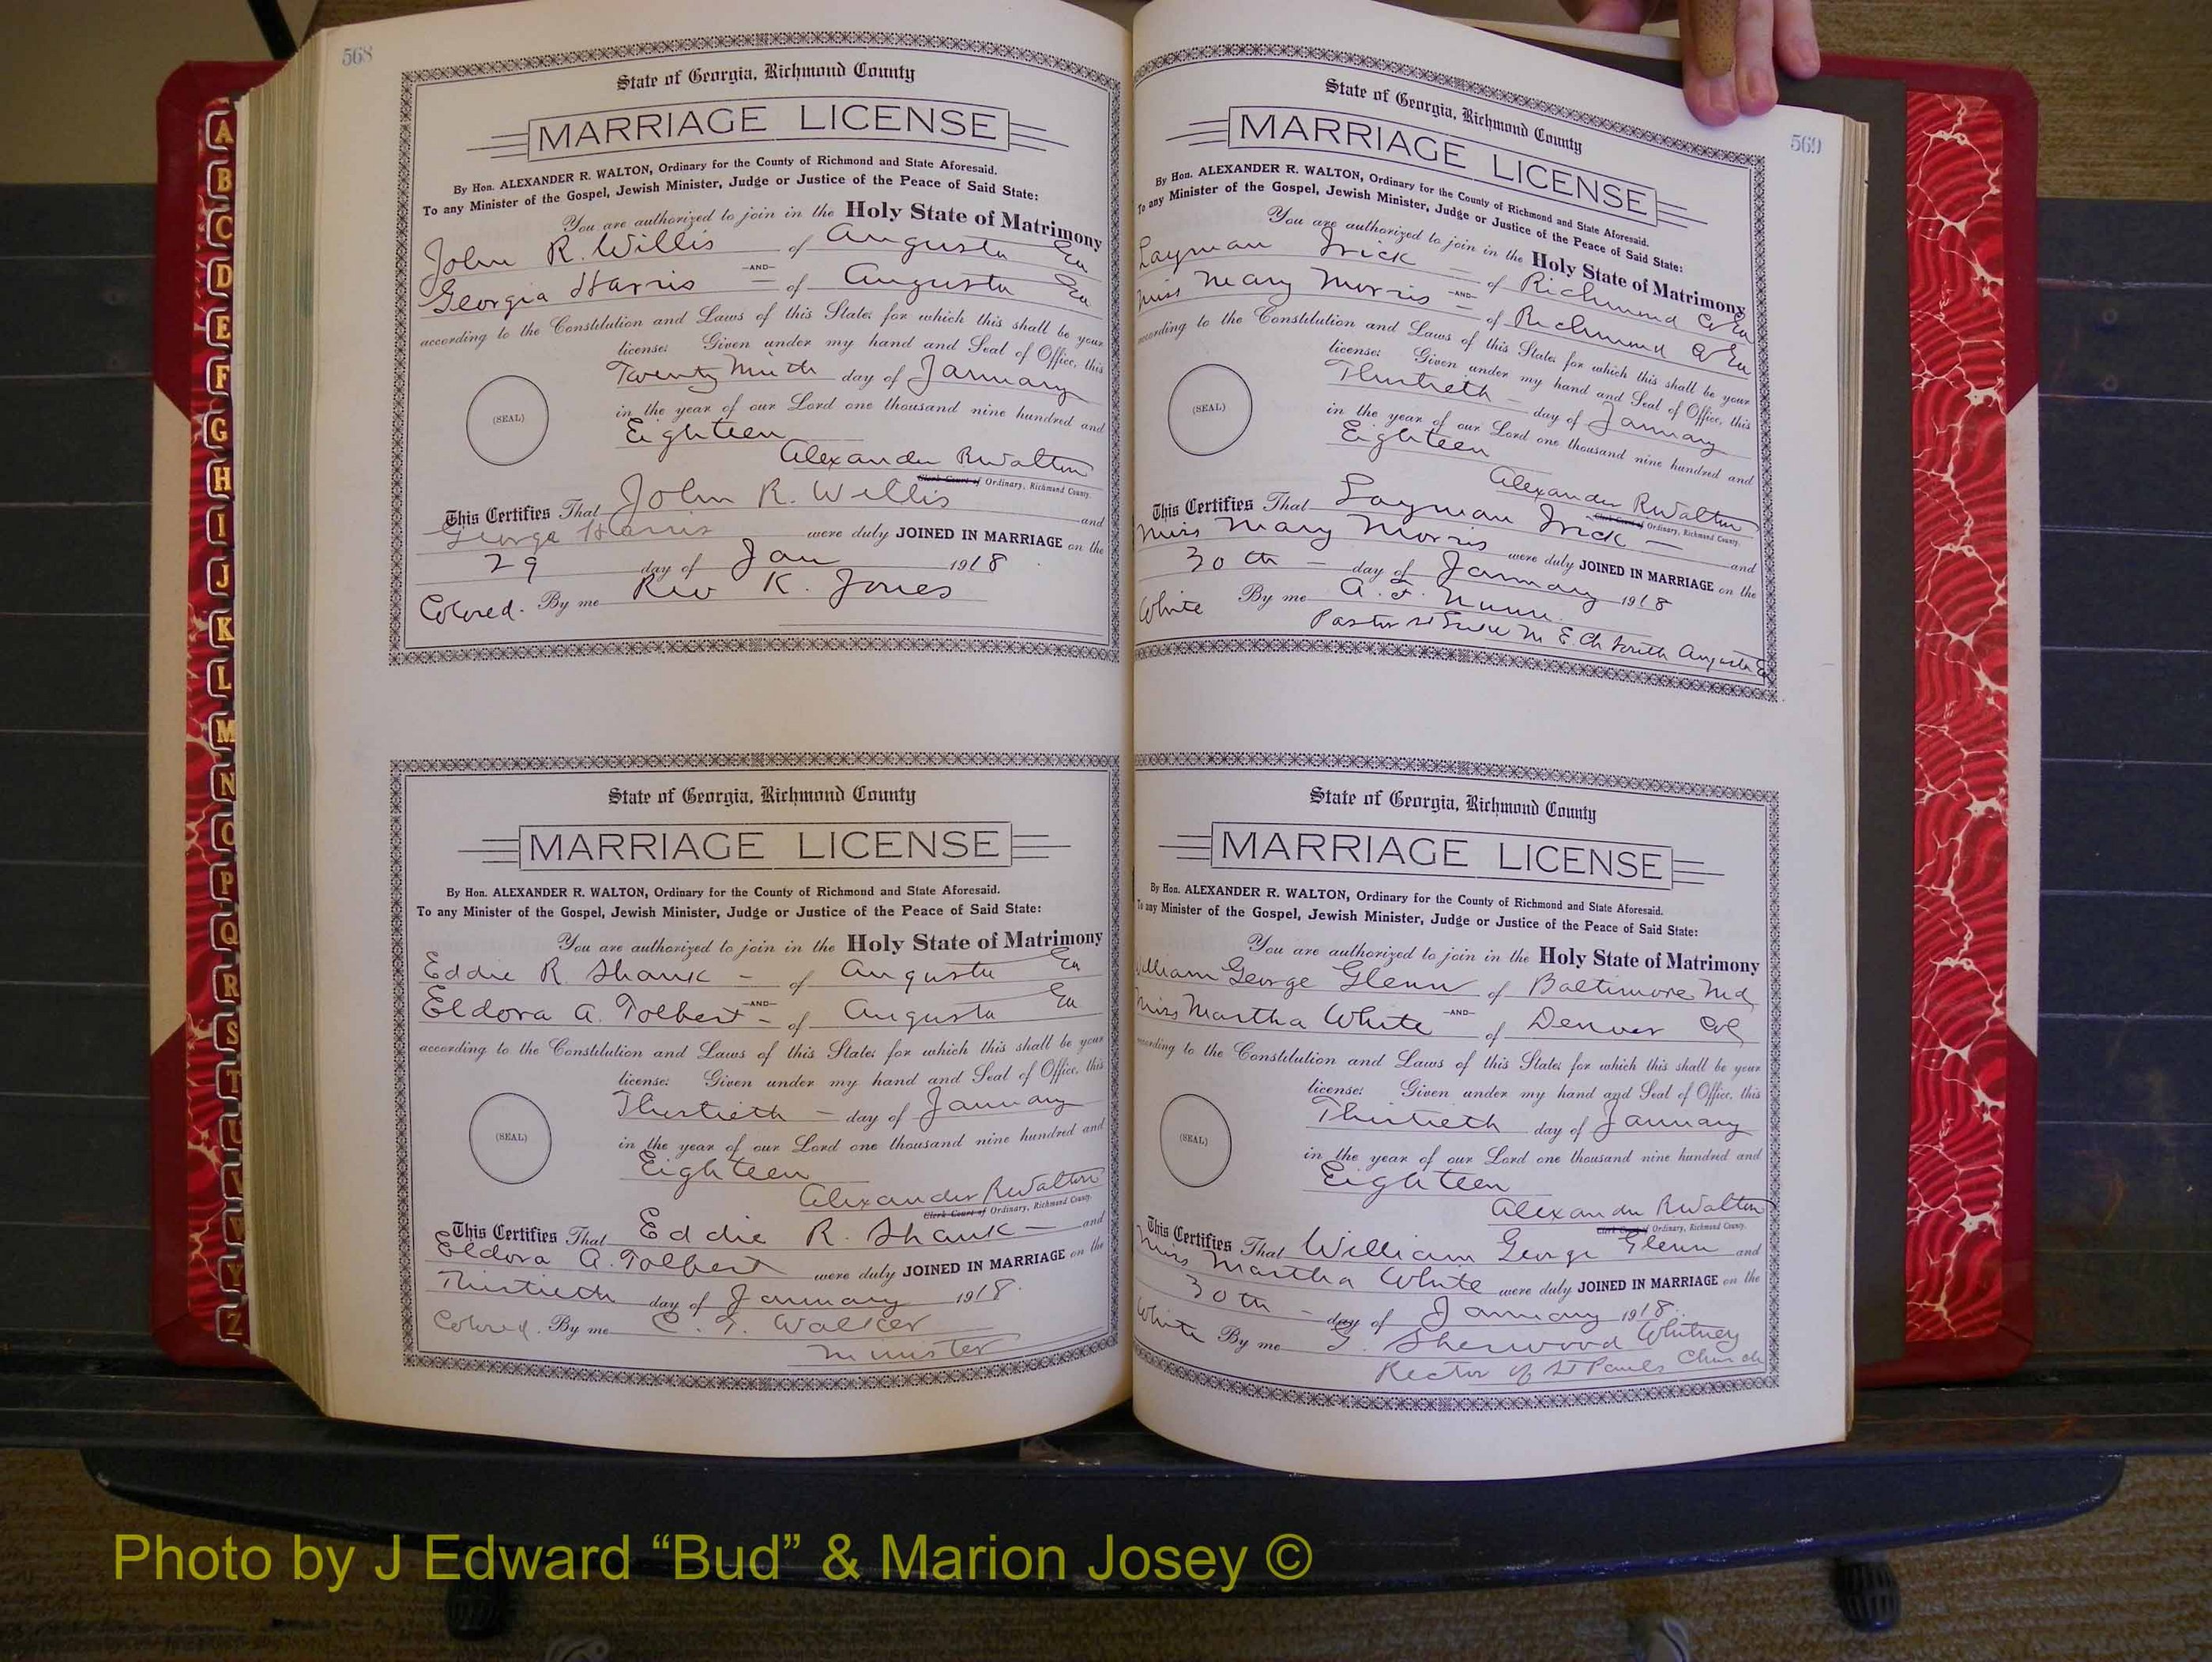 568
State of Georgia, Richmond County
MARRIAGE LICENSE
By Hon. ALEXANDER R. WALTON, Ordinary for the County of Richmond and State Aforesaid.
To any Minister of the Gospel, Jewish Minister, Judge or Justice of the Peace of Said State:
You are authorized to join in the Holy State of Matrimony
John R. Willis of Augusta Ga
—AND—
Georgia Harris of Augusta Ga
according to the Constitution and Laws of this State, for which this shall be your
license: Given under my hand and Seal of Office, this
Twenty Ninth day of January
(SEAL)
in the year of our Lord one thousand nine hundred and
Eighteen
Alexander R Walton
Clerk Court of Ordinary, Richmond County.
This Certifies That John R. Willis and
George Harris were duly JOINED IN MARRIAGE on the
29 day of Jan 1918
Colored. By me Rev K. Jones
State of Georgia, Richmond County
MARRIAGE LICENSE
By Hon. ALEXANDER R. WALTON, Ordinary for the County of Richmond and State Aforesaid.
To any Minister of the Gospel, Jewish Minister, Judge or Justice of the Peace of Said State:
You are authorized to join in the Holy State of Matrimony
Eddie R. Shank - of Augusta Ga
—AND—
Eldora A. Tolbert - of Augusta Ga
according to the Constitution and Laws of this State, for which this shall be your
license: Given under my hand and Seal of Office, this
Thirtieth - day of January
(SEAL)
in the year of our Lord one thousand nine hundred and
Eighteen
Alexander R Walton
Clerk Court of Ordinary, Richmond County.
This Certifies That Eddie R. Shank - and
Eldora A. Tolbert were duly JOINED IN MARRIAGE on the
Thirtieth day of January 1918.
Colored. By me C. T. Walker
Minister
569
State of Georgia, Richmond County
MARRIAGE LICENSE
By Hon. ALEXANDER R. WALTON, Ordinary for the County of Richmond and State Aforesaid.
To any Minister of the Gospel, Jewish Minister, Judge or Justice of the Peace of Said State:
You are authorized to join in the Holy State of Matrimony
Layman Irick - of Richmond Co Ga
—AND—
Miss Mary Morris - of Richmond Co Ga
according to the Constitution and Laws of this State, for which this shall be your
license: Given under my hand and Seal of Office, this
Thirtieth - day of January
(SEAL)
in the year of our Lord one thousand nine hundred and
Eighteen
Alexander R Walton
Clerk Court of Ordinary, Richmond County.
This Certifies That Layman Irick - and
Miss Mary Morris were duly JOINED IN MARRIAGE on the
30th - day of January 1918
White By me A. F. Nunn
Pastor M. E. Ch South Augusta Ga
State of Georgia, Richmond County
MARRIAGE LICENSE
By Hon. ALEXANDER R. WALTON, Ordinary for the County of Richmond and State Aforesaid.
To any Minister of the Gospel, Jewish Minister, Judge or Justice of the Peace of Said State:
You are authorized to join in the Holy State of Matrimony
William George Glenn of Baltimore Md
—AND—
Miss Martha White of Denver Col
according to the Constitution and Laws of this State, for which this shall be your
license: Given under my hand and Seal of Office, this
Thirtieth day of January
(SEAL)
in the year of our Lord one thousand nine hundred and
Eighteen
Alexander R Walton
Clerk Court of Ordinary, Richmond County.
This Certifies That William George Glenn and
Miss Martha White were duly JOINED IN MARRIAGE on the
30th - day of January 1918.
White By me G. Sherwood Whitney
Rector of St Pauls Church
A
B
C
D
E
F
G
H
I
J
K
L
M
N
O
P
Q
R
S
T
U
V
W
Y
Z
Photo by J Edward “Bud” & Marion Josey ©